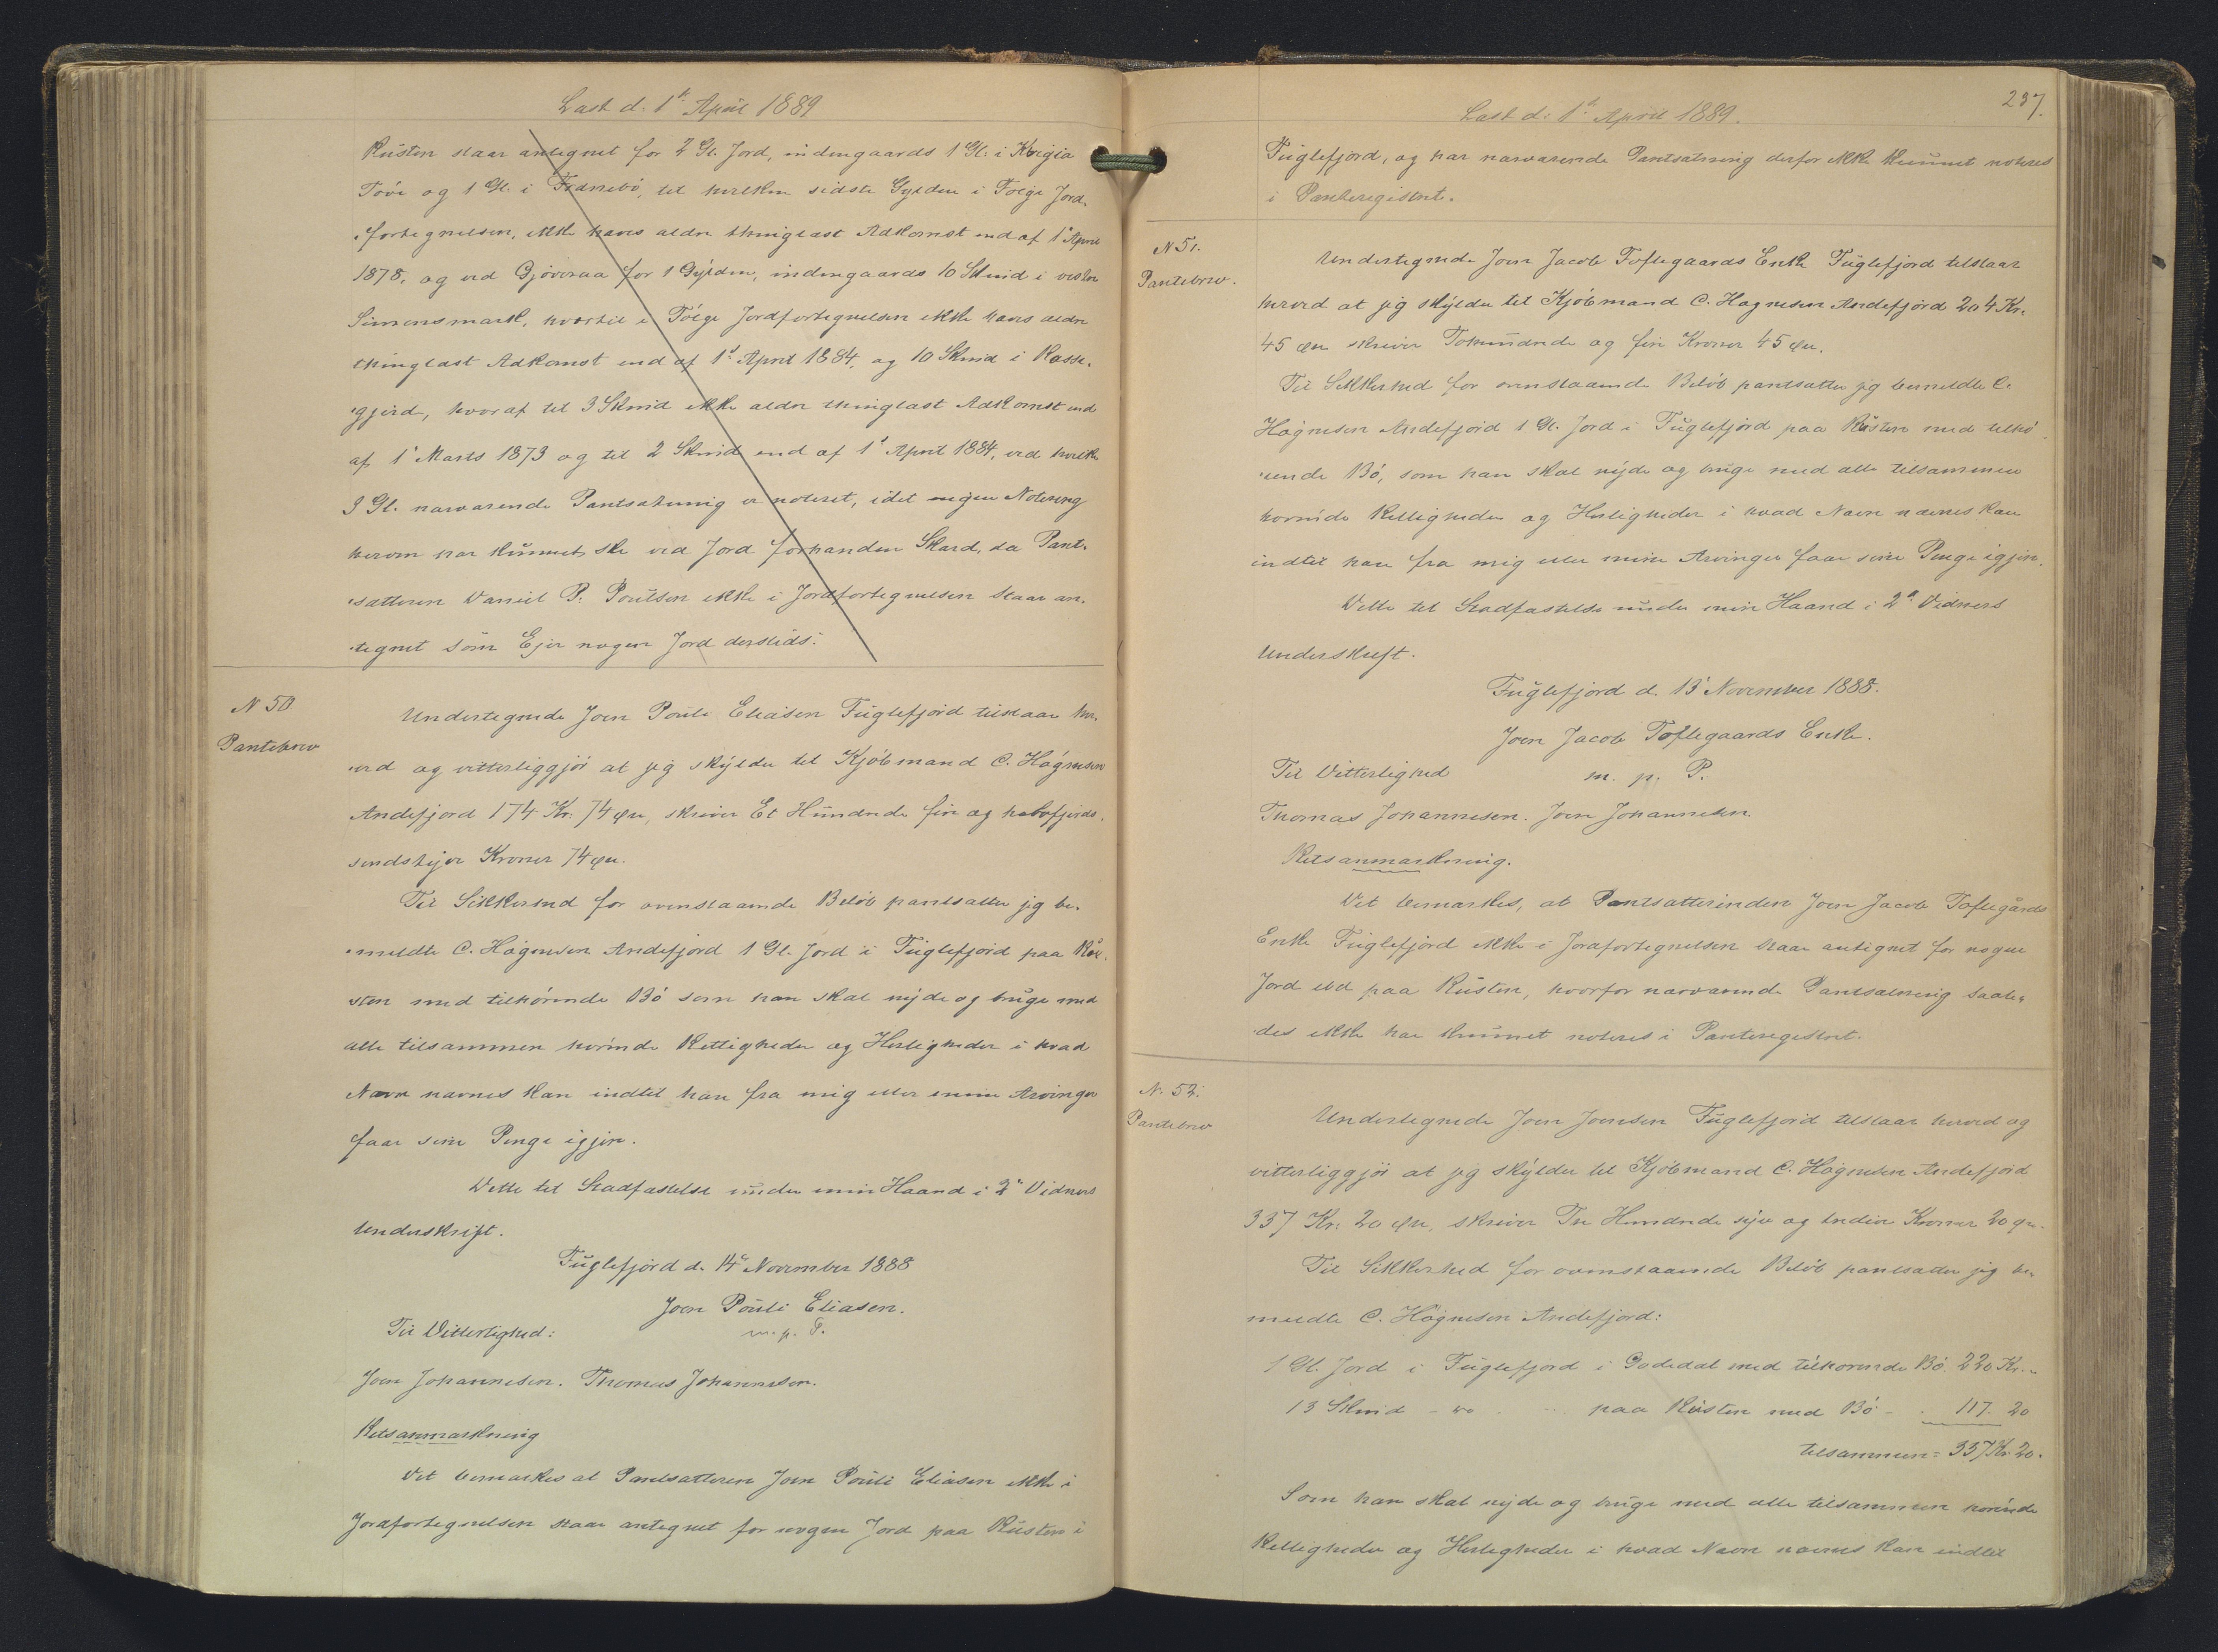 Læst d: 1ste April 1889
Rústen staar antegnet for 2 Gl. Jord, indengaards 1 Gl: i
og 1 Gl. i til hvilken sidste Gylden i Følge Jord-
fortegnelsen, ikke haves ældre thinglæst Adkomst end af 1' April
1878, og ved Gjóveraa for 1 Gylden, indengaards 10 Skind i vester
Simonsmark, hvortil i Fólge Jordfortegnelsen ikke haves ældre
thinglæst Adkomst end af 1' April 1884, og 10 Skind i
gjerd, hvoraf til 3 Skind ikke ældre thinglæst Adkomst end
af 1' Marts 1873 og til 2 Skind end af 1' April 1884, ved hvilke
3 Gl. nærværende Pantsætning er noteret, idet ingen Notering
herom har kúnnet ske ved Jord forhanden Skard, da Pant-
sætteren Daniel P. Poulsen ikke i Jordfortegnelsen staar an-
tegnet som Ejer nogen Jord dersteds.
N 50
Pantebrev
Undertegnede Joen Poúli Eliasen Fúglefjord tilstaar her-
ved og vitterliggjór at jeg skylder til Kjóbmand C. Hógnesen
Andefjord 174 Kr. 74 Øre, skriver Et Húndrede fire og halvfjerds-
sendstyve Kroner 74 Øre.
Til Sikkerhed for ovenstaaende Belób pantsætter jeg be-
meldte C. Hógnesen Andefjord 1 Gl. Jord i Fúglefjord paa Rú-
sten med tilhórende Bó som han skal nyde og brúge med
alle tilsammen hórende Rettigheder og Herligheder i hvad
Navn nævnes kan indtil han fra mig eller mine Arvinger
faar sine Penge igjen.
Dette til Stadfæstelse únder min Haand i 2de Vidners
Underskrift.
Fúglefjord d. 14' November 1888
Joen Poúli Eliasen.
m. p. P.
Til Vitterlighed:
Joen Johannesen. Thomas Johannesen.
Retsanmærkning
Det bemærkes at Pantsætteren Joen Poúli Eliasen ikke i
Jordfortegnelsen staar antegnet for nogen Jord paa Rústen i
Læst d: 1' April 1889.
237.
Fúglefjord, og har nærværende Pantsætning derfor ikke kúnnet noteres
i Panteregistret.
N 51.
Pantebrev.
Undertegnede Joen Jacob Toftegaards Enke Fúglefjord tilstaar
herved at jeg skylder til Kjóbmand C. Hognesen Andefjord 204 Kr.
45 Øre skriver Tohúndrede og fire Kroner 45 Øre.
Til Sikkerhed for ovenstaaende Belób pantsætter jeg bemeldte C.
Hógnesen Andefjord 1 Gl. Jord i Fúglefjord paa Rústen med tilhó-
rende Bó, som han skal nyde og brúge med alle tilsammen
hórende Rettigheder og Herligheder i hvad Navn nævnes kan
indtil han fra mig eller mine Arvinger faar sine Penge igjen.
Dette til Stadfæstelse únder min Haand i 2de Vidners
Underskrift.
Fúglefjord d. 13' November 1888.
Joen Jacob Toftegaards Enke.
Til Vitterlighed m. p. P.
Thomas Johannesen. Joen Johannesen.
Retsanmærkning.
Det bemærkes, at Pantsætterinden Joen Jacob Toftegårds
Enke Fúglefjord ikke i Jordfortegnelsen staar antegnet for nogen
Jord ibd paa Rústen, hvorfor nærværende Pantsætning saale-
des ikke har kúnnet noteres i Panteregistret.
N. 52.
Pantebrev
Undertegnede Joen Joensen Fúglefjord tilstaar herved og
vitterliggjór at jeg skylder til Kjóbmand C. Hógnesen Andefjord
337 Kr. 20 Øre, skriver Tre Hundrede syv og tredive Kroner 20 Øre.
Til Sikkerhed for ovenstaaende Belób pantsætter jeg be-
meldte C. Hógnesen Andefjord:
1 Gl. Jord i Fúglefjord i Godedal med tilhorende Bó 220 Kr. "
13 Skind - do - paa Rústen med Bó - 117. 20
tilsammen = 337 Kr. 20.
Som han skal nyde og brúge med alle tilsammen hórende
Rettigheder og Herligheder i hvad Navn nævnes kan indtil